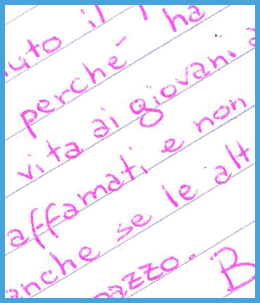 uto il
perché ha
vita ai giovani a
affamati e non
anche se le alt
pazzo. B